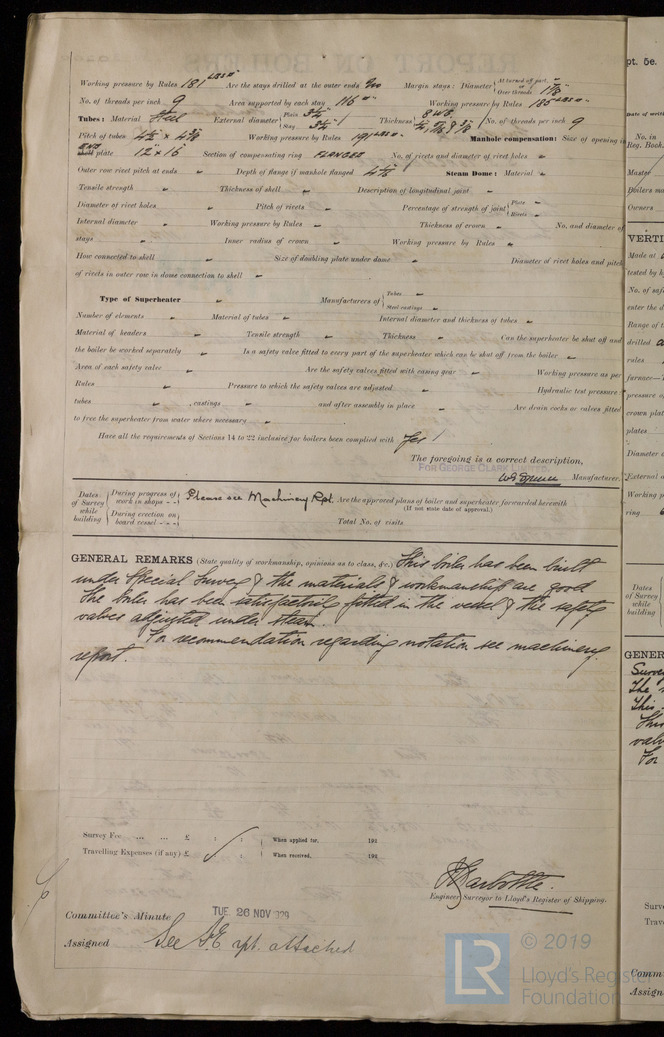 Working pressure by Rules 181 Are the stays drilled at the outer ends No Margin stays: Diameter { At turned off part, or Over threads 1 7/8
No. of threads per inch 9 Area supported by each stay 116 Working pressure by Rules 185
Tubes: Material Steel External diameter { Plain 3 1/4 Stay 3 1/4 Thickness { 8 WG No. of threads per inch 9
Pitch of tubes Working pressure by Rules 191 Manhole compensation: Size of opening in
END shell plate 12" x 16 Section of compensating ring FLANGED No. of rivets and diameter of rivet holes -
Outer row rivet pitch at ends - Depth of flange if manhole flanged Steam Dome: Material -
Tensile strength - Thickness of shell - Description of longitudinal joint -
Diameter of rivet holes - Pitch of rivets - Percentage of strength of joint { Plate - Rivets -
Internal diameter - Working pressure by Rules - Thickness of crown - No. and diameter of
stays - Inner radius of crown - Working pressure by Rules -
How connected to shell - Size of doubling plate under dome - Diameter of rivet holes and pitch
of rivets in outer row in dome connection to shell -
Type of Superheater - Manufacturers of { Tubes - Steel castings -
Number of elements - Material of tubes - Internal diameter and thickness of tubes -
Material of headers - Tensile strength - Thickness - Can the superheater be shut off and
the boiler be worked separately - Is a safety valve fitted to every part of the superheater which can be shut off from the boiler -
Area of each safety valve - Are the safety valves fitted with easing gear - Working pressure as per
Rules - Pressure to which the safety valves are adjusted - Hydraulic test pressure
tubes - , castings - and after assembly in place - Are drain cocks or valves fitted
to free the superheater from water where necessary -
Have all the requirements of Sections 14 to 22 inclusive for boilers been complied with Yes
The foregoing is a correct description,
FOR GEORGE CLARK LIMITED.
Manufacturer.
Dates of Survey while building { During progress of work in shops - - Please see Machinery Rpt. Are the approved plans of boiler and superheater forwarded herewith
(If not state date of approval.)
During erection on board vessel - - - Total No. of visits
GENERAL REMARKS (State quality of workmanship, opinions as to class, &c.) This boiler has been built
under Special Survey & the materials & workmanship are good
The boiler has been satisfactorily fitted in the vessel & the safety
valves adjusted under steam.
For recommendation regarding notation see machinery
report.
Survey Fee ... ... £ : : When applied for, 192
Travelling Expenses (if any) £ : : When received, 192
Engineer Surveyor to Lloyd's Register of Shipping.
Committee's Minute TUE. 26 NOV 1929
Assigned See F.E. rpt. attached
LR © 2019
Lloyd's Register
Foundation
pt. 5e.
Date of writ
No. in
Reg. Book.
Master
Boilers m
Owners
VERTI
Made at
tested by h
No. of saf
enter the d
Range of t
drilled
rules
furnace
pressure o
crown plat
plates
Diameter o
External d
Working p
ring
Dates
of Survey
while
building
GENER
Surve
The
This
This
valv
For
Surve
Trave
Comm
Assign